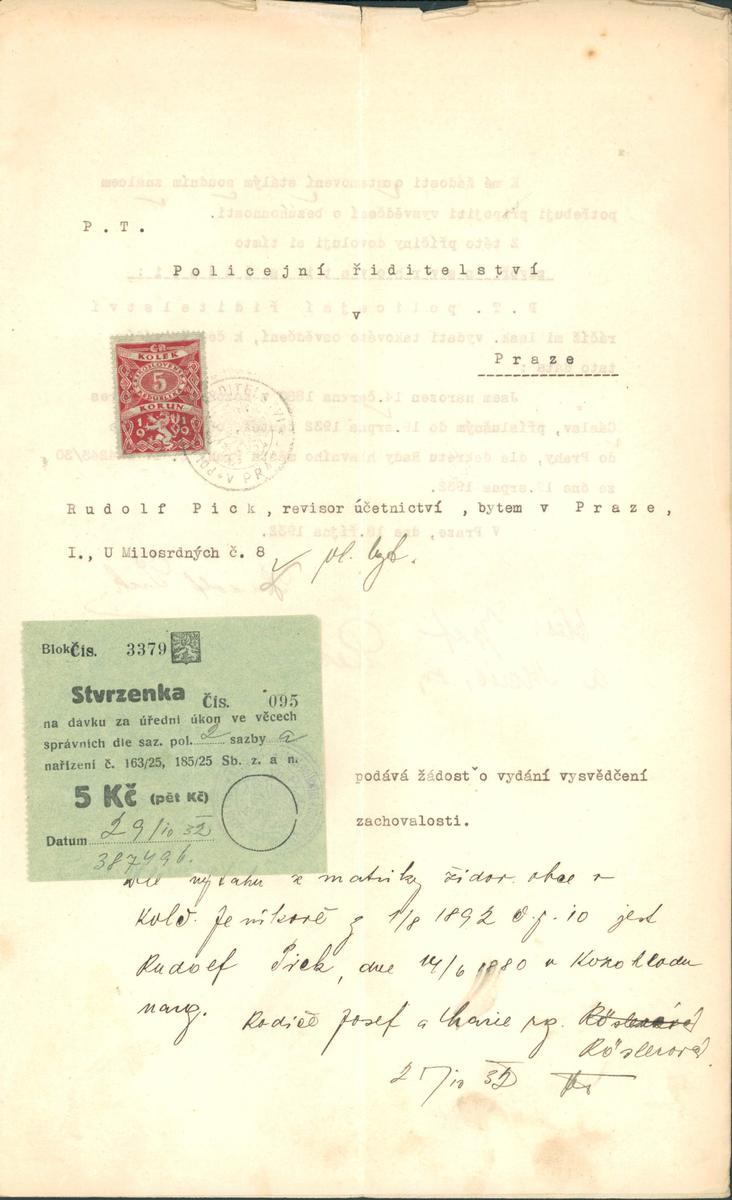 P. T.
Policejní řiditelství
v
Praze
ČR.
KOLEK
5
KORUN
1919
V PRA
Rudolf Pick, revisor účetnictví, bytem v Praze,
I., U Milosrdných č. 8
Blok Čís. 3379
Stvrzenka Čís. 095
na dávku za úřední úkon ve věcech
správních dle saz. pol. 2 sazby a
nařízení č. 163/25, 185/25 Sb. z. a n.
5 Kč (pět Kč)
Datum 29/10 32
387496.
podává žádost o vydání vysvědčení
zachovalosti.
výtahu z matriky židov. obce v
Golč. Jeníkově z 1/8 1892 č. p. 10 jest
Rudolf Pick, dne 14/6 1880 v
naroz. Rodiče Josef a Marie roz. Röslerová
Röslerová
/10 32